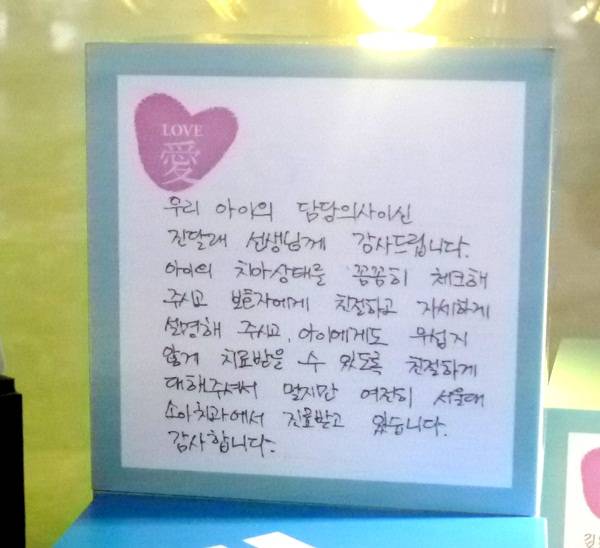 LOVE
愛
우리 아이의 담당의사이신
진달래 선생님께 감사드립니다.
아이의 치아상태를 꼼꼼히 체크해
주시고 보호자에게 친절하고 자세하게
설명해 주시고, 아이에게도 무섭지
않게 치료받을 수 있도록 친절하게
대해주셔서 멀지만 여전히 서울대
소아치과에서 진료받고 있습니다.
감사합니다.